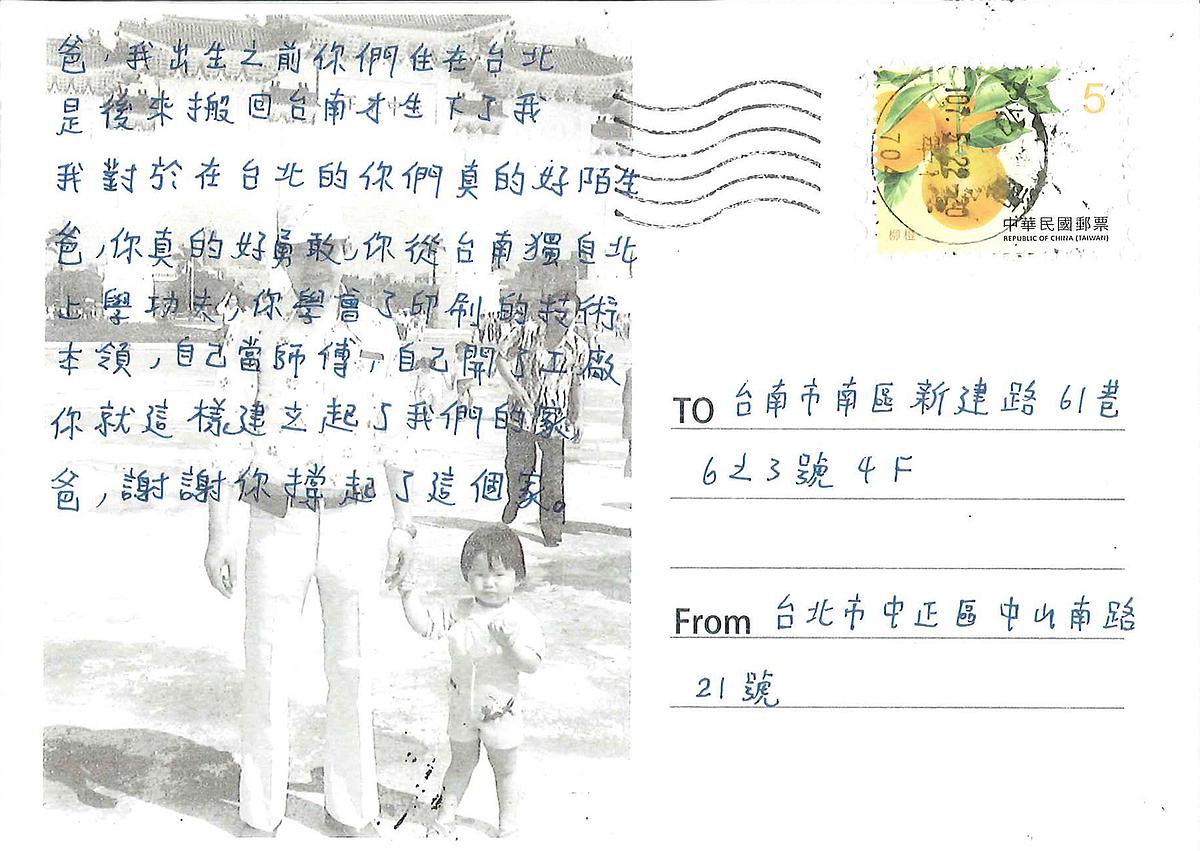 爸，我出生之前你們住在台北
是後來搬回台南才生下了我
我對於在台北的你們真的好陌生
爸，你真的好勇敢，你從台南獨自北
上學功夫，你學會了印刷的技術
本領，自己當師傅，自己開了工廠
你就這樣建立起了我們的家
爸，謝謝你撐起了這個家。
5
702
柳橙
中華民國郵票
REPUBLIC OF CHINA (TAIWAN)
TO 台南市南區新建路 61巷
6之3號 4F
From 台北市中正區中山南路
21號